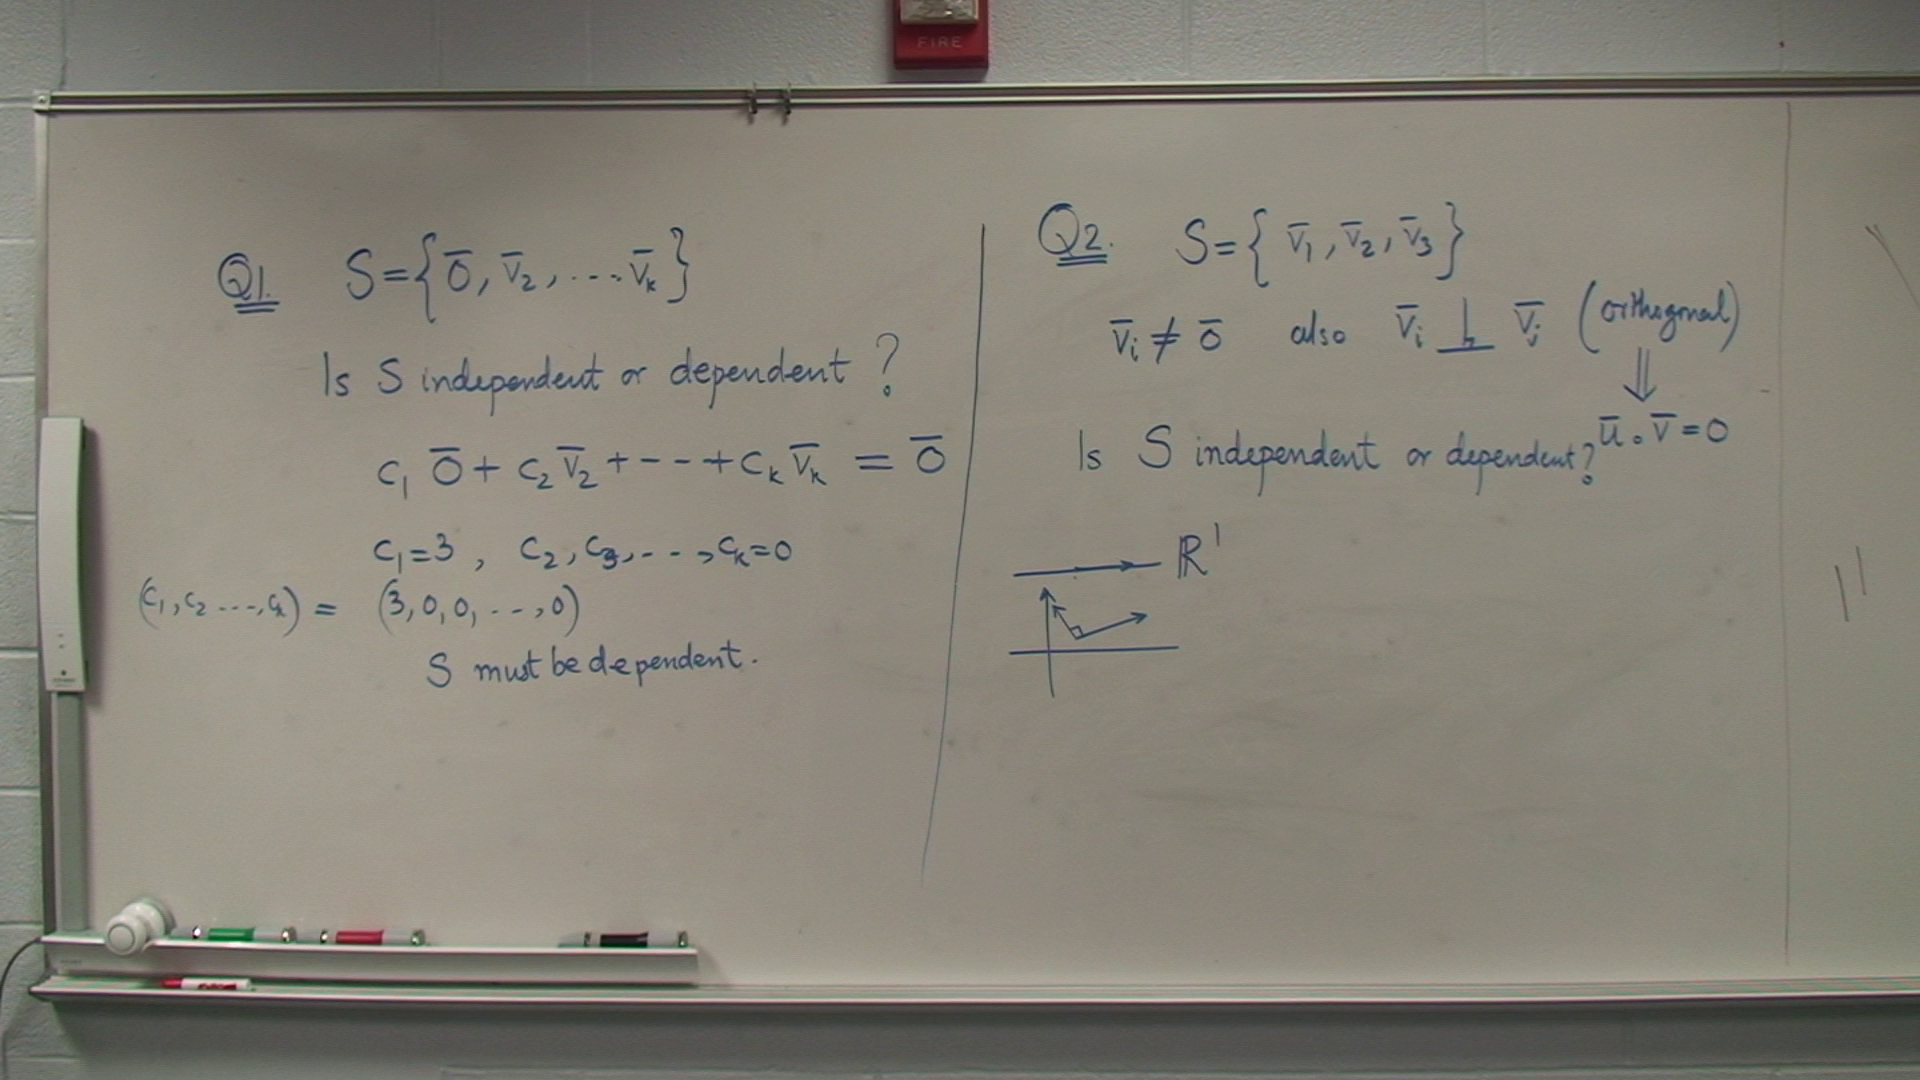 FIRE
Q1. S={0̄, v̄₂, ....v̄ₖ}
Is S independent or dependent?
c₁ 0̄ + c₂ v̄₂ + --- + cₖ v̄ₖ = 0̄
c₁=3, c₂, c₃, ---, cₖ=0
(c₁, c₂ ---, cₖ) = (3, 0, 0, ---, 0)
S must be dependent.
Q2. S={ v̄₁, v̄₂, v̄₃}
v̄ᵢ ≠ 0̄ also v̄ᵢ ⊥ v̄ⱼ (orthogonal)
⇓
ū . v̄ = 0
Is S independent or dependent?
ℝ¹